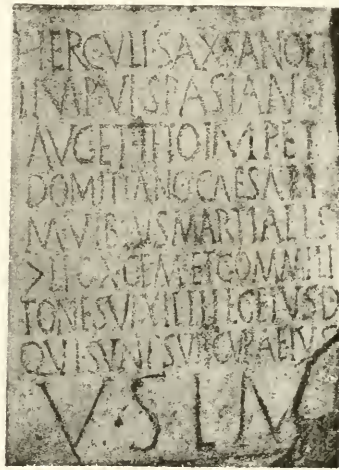 HERCVLI SAXSANO ET
IMP VESPASIANO
AVG ET TITO IMP ET
DOMITIANO CAESARI
M VIBIVS MARTIALIS
> LEG X GEM ET COMMILI
TONES VEXILLI LEG EIVSD
QVI SVNT SVB CVRA EIVS
V S L M